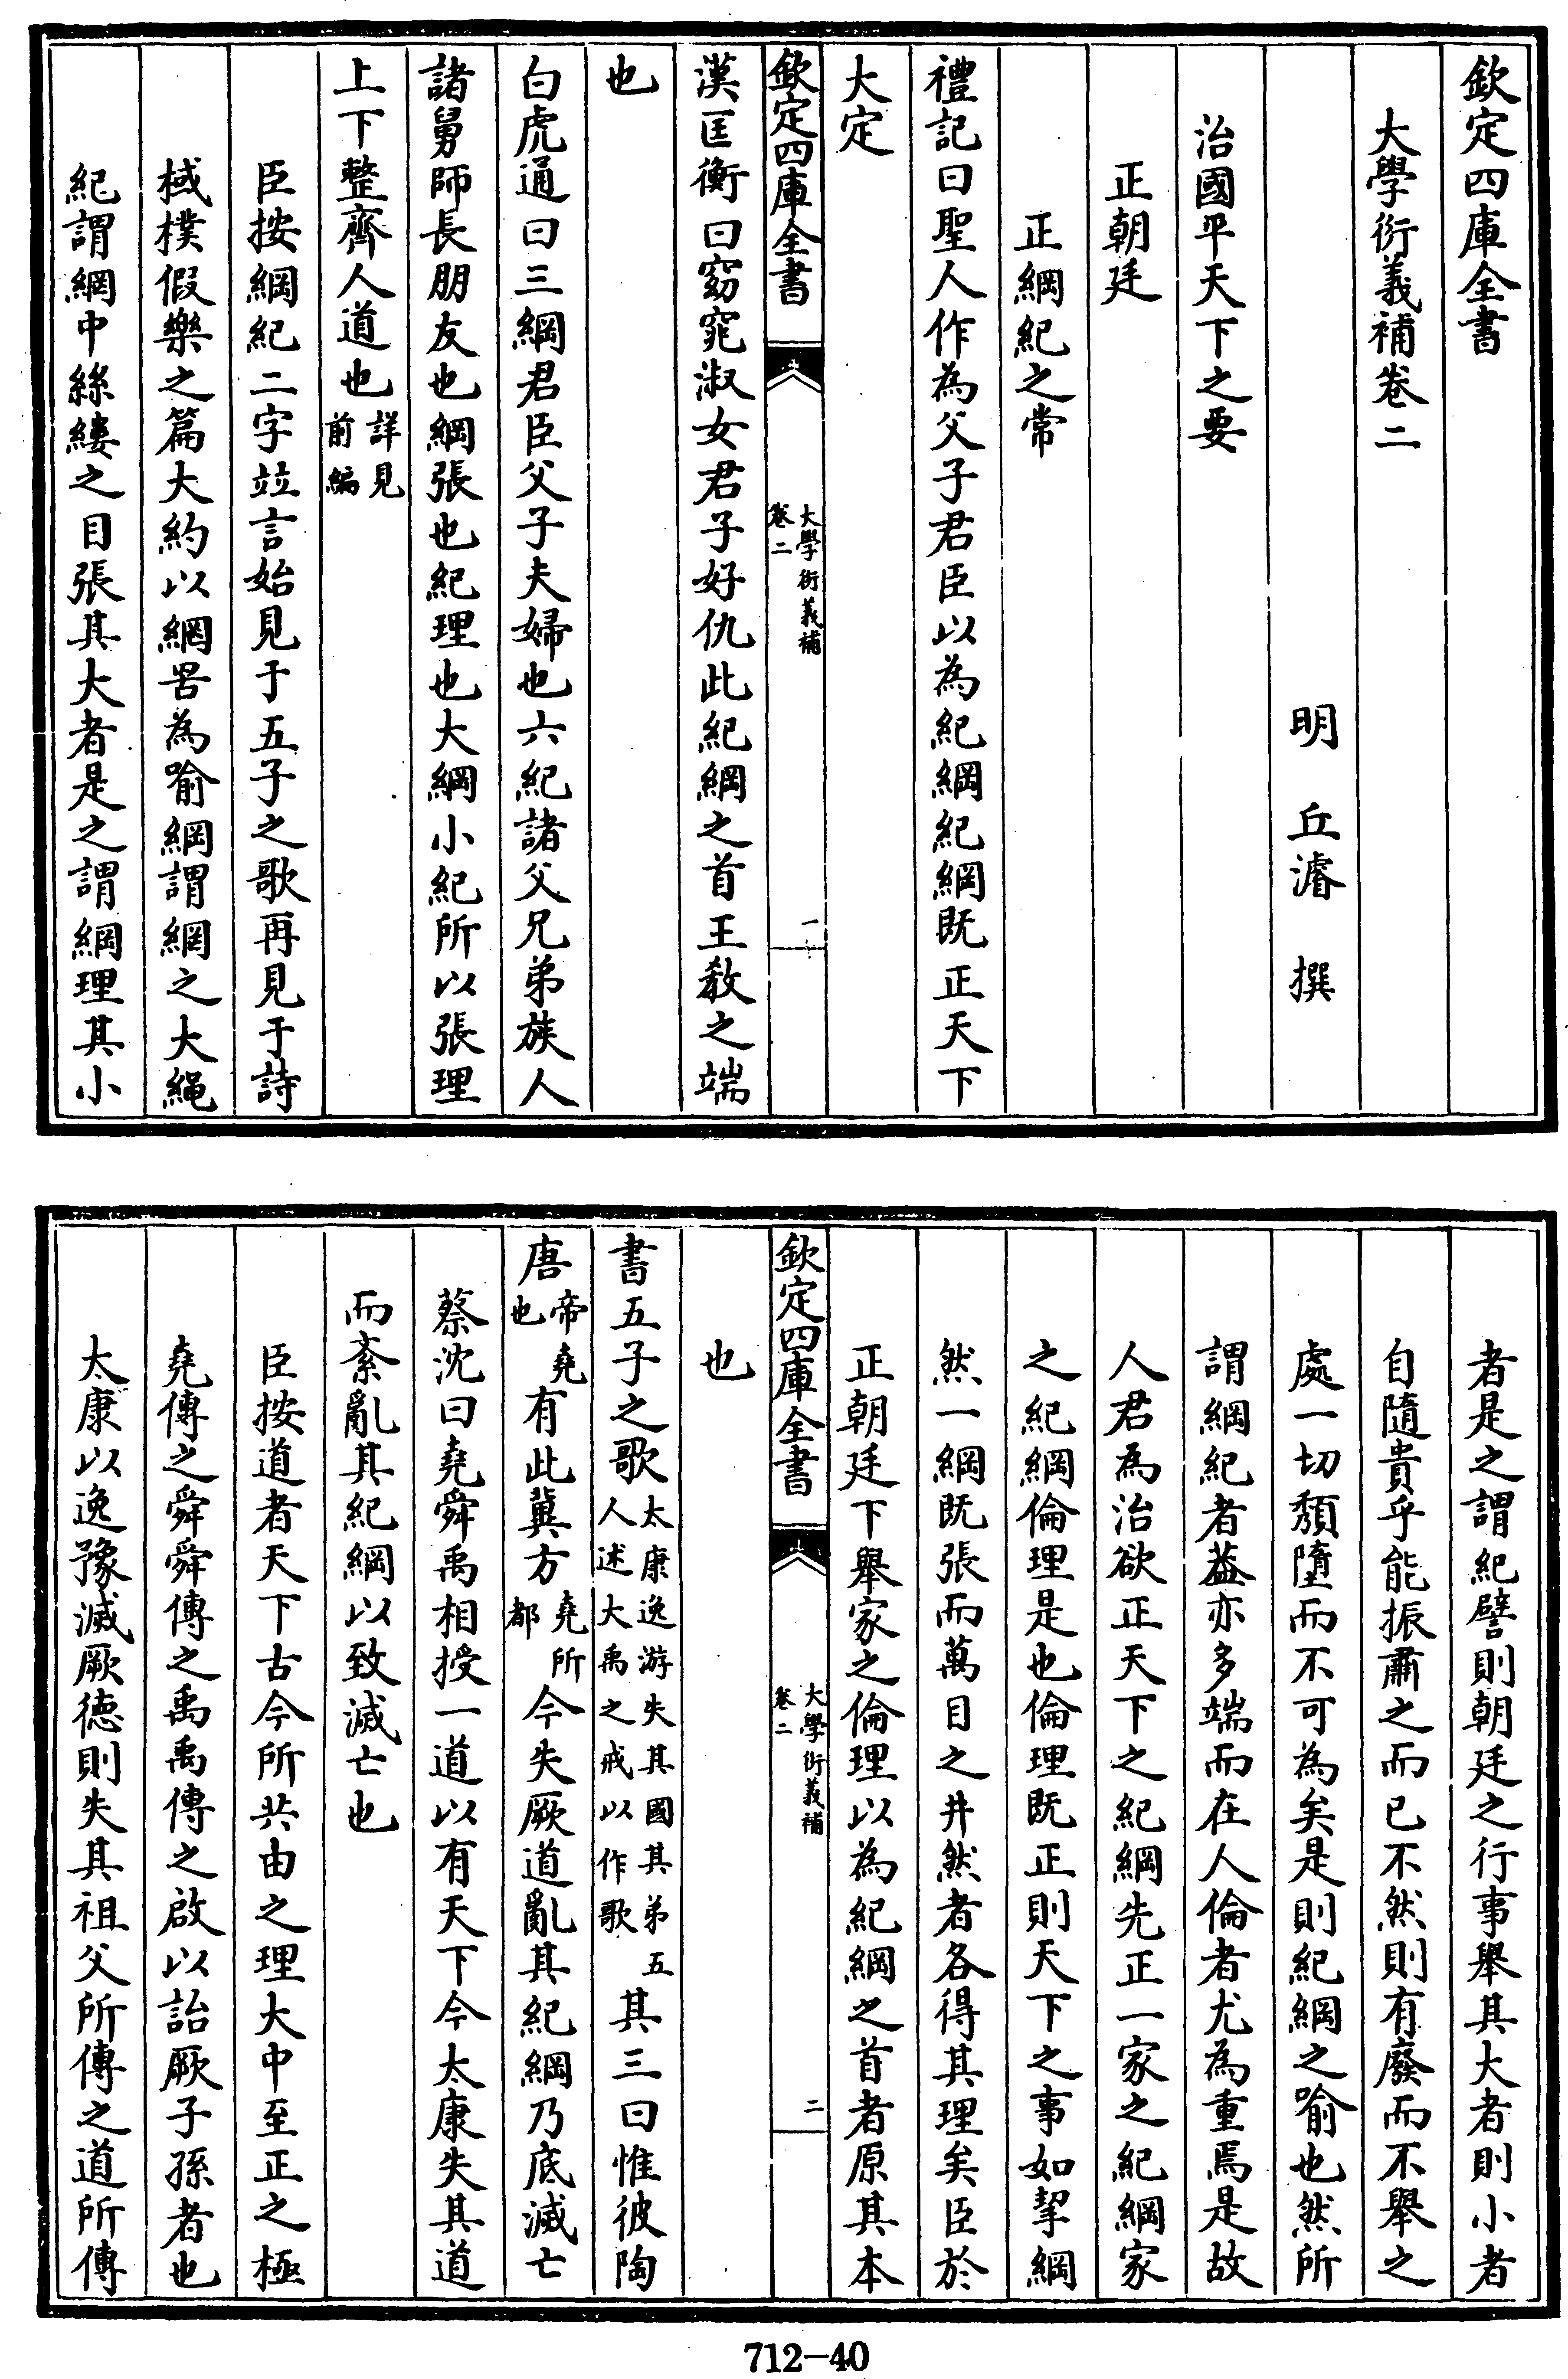 欽定四庫全書
大學衍義補卷二
明 丘濬 撰
治國平天下之要
正朝廷
正綱紀之常
禮記曰聖人作為父子君臣以為紀綱紀綱既正天下
大定
欽定四庫全書 大學衍義補 卷二 一
漢匡衡曰窈窕淑女君子好仇此紀綱之首王教之端
也
白虎通曰三綱君臣父子夫婦也六紀諸父兄弟族人
諸舅師長朋友也綱張也紀理也大綱小紀所以張理
上下整齊人道也詳見前編
臣按綱紀二字竝言始見于五子之歌再見于詩
棫樸假樂之篇大約以網罟為喻綱謂網之大繩
紀謂網中絲縷之目張其大者是之謂綱理其小
者是之謂紀譬則朝廷之行事舉其大者則小者
自隨貴乎能振肅之而已不然則有廢而不舉之
處一切頹墮而不可為矣是則紀綱之喻也然所
謂綱紀者葢亦多端而在人倫者尤為重焉是故
人君為治欲正天下之紀綱先正一家之紀綱家
之紀綱倫理是也倫理既正則天下之事如挈綱
然一綱既張而萬目之井然者各得其理矣臣於
正朝廷下舉家之倫理以為紀綱之首者原其本
欽定四庫全書 大學衍義補 卷二 二
也
書五子之歌太康逸游失其國其弟五人述大禹之戒以作歌其三曰惟彼陶
唐帝堯也有此冀方堯所都今失厥道亂其紀綱乃底滅亡
蔡沈曰堯舜禹相授一道以有天下今太康失其道
而紊亂其紀綱以致滅亡也
臣按道者天下古今所共由之理大中至正之極
堯傳之舜舜傳之禹禹傳之啟以詒厥子孫者也
太康以逸豫滅厥德則失其祖父所傳之道所傳
712-40